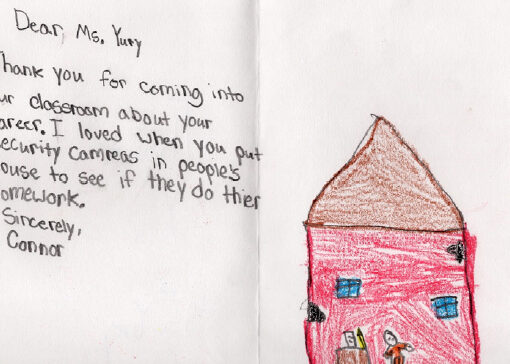 Dear, Ms. Yury
hank you for coming into
ur classroom about your
areer. I loved when you put
ecurity camreas in people's
ouse to see if they do thier
omework.
Sincerely,
Connor